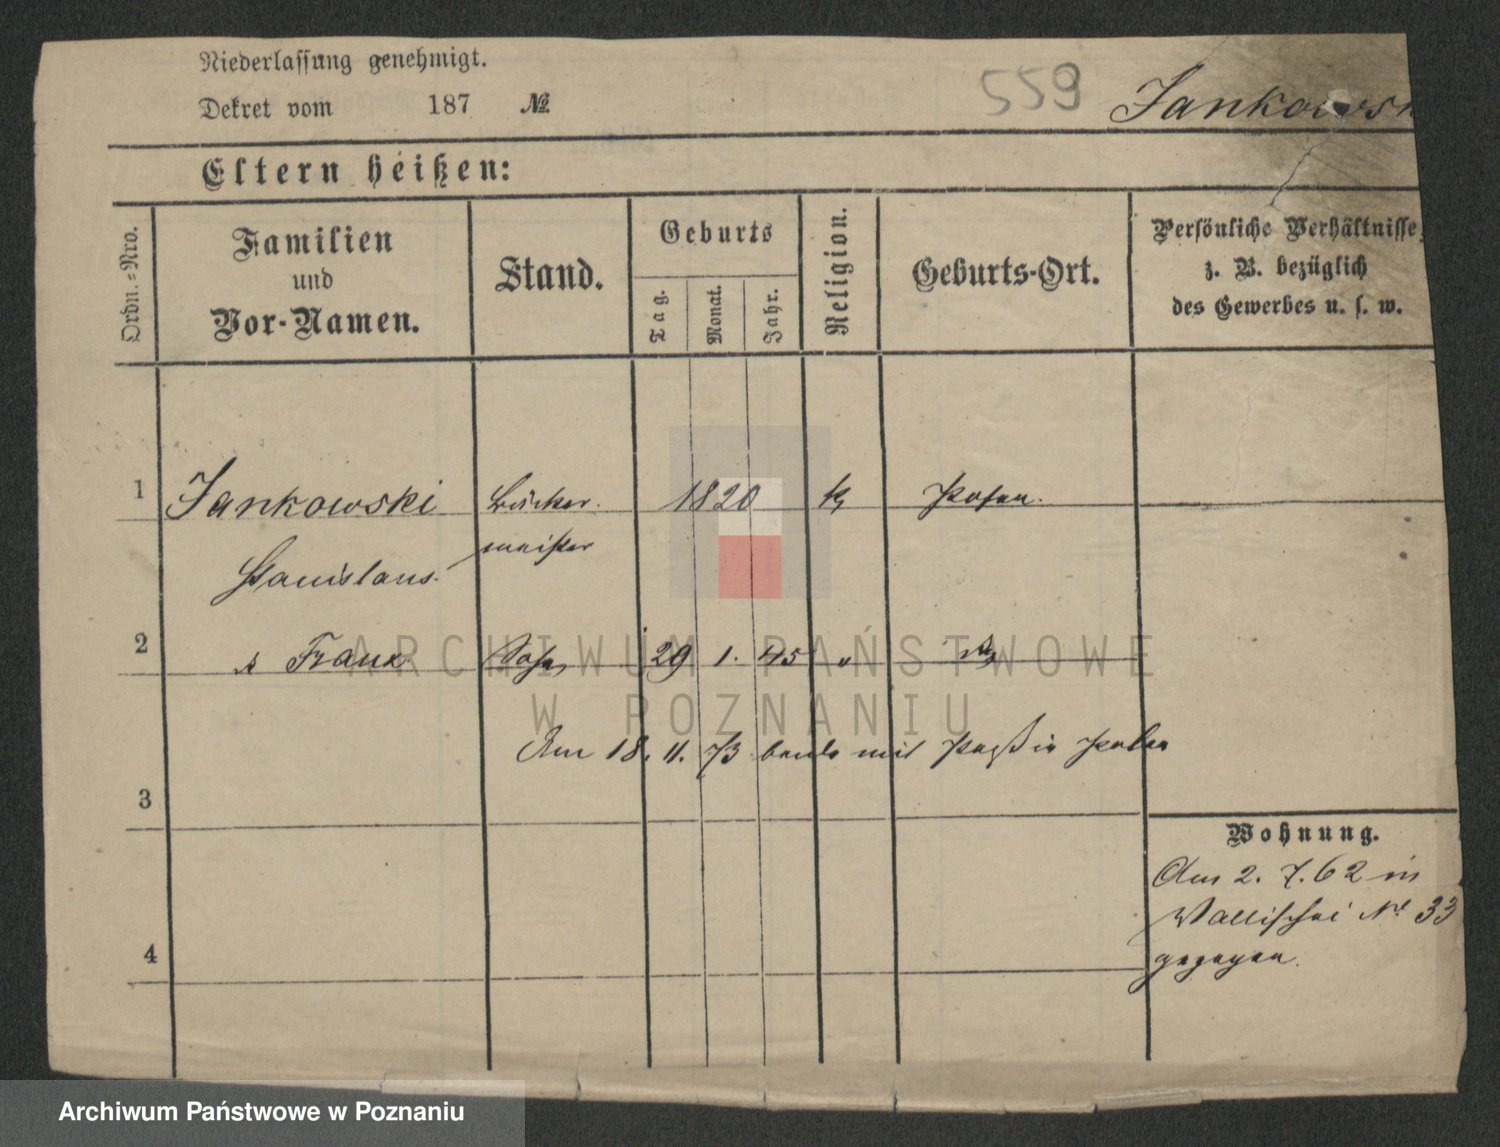 Niederlassung genehmigt.
559
Jankowsk
Dekret vom 187 №
Eltern heißen:
Ordn.-Nro.
Familien
und
Vor-Namen.
Stand.
Geburts
Tag.
Monat.
Jahr.
Religion.
Geburts-Ort.
Persönliche Verhältnisse,
z. B. bezüglich
des Gewerbes u. s. w.
1 Jankowski Bäcker- 1820 k Posen.
Stanislaus. meister
2 s Franz Sohn 29 1. 45 "
Am 18. 11. 73 mit Paß in
3
4
Wohnung.
Am 2. 7. 62 in
Wallischei № 33
gezogen.
ARCHIWUM PAŃSTWOWE
W POZNANIU
Archiwum Państwowe w Poznaniu